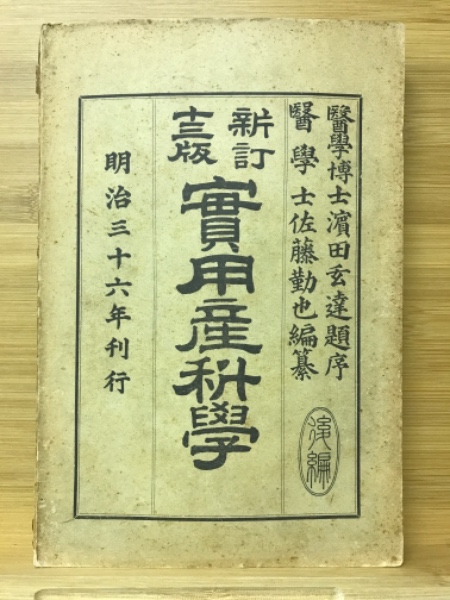 醫學博士濵田玄達題序
醫學士佐藤勤也編纂
新訂
十三版
實用産科學
後編
明治三十六年刊行